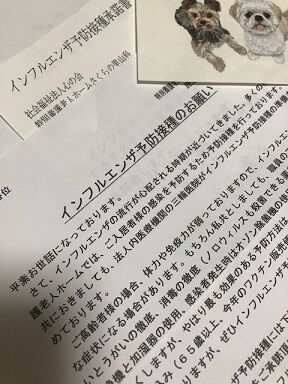 インフルエンザ予防接種承諾書
社会福祉法人心の会
特別養護老人ホームさくらの里山科
インフルエンザ予防接種のお願い
平素お世話になっております。
さて、インフルエンザの流行が心配される時期が近づいてきました。多くの
護老人ホームでは、ご入居者様の感染を予防するため予防接種を行っております。
共におきましても、法人内医療機関の三輪医院がインフルエンザ予防接種の準備
めております。
ご高齢者様の場合、体力や免疫力が弱っておりますので、インフルエン
な症状になる場合があります。もちろん私共としましても、職員の
いとうがいの徹底、消毒の徹底（ノロウイルスも殺菌できる
浄機と加湿器の使用、感染者発生時は
くしますが、やはり最も効果のある予防方法は、
み（６５歳以上、今年のワクチン
りますが、ぜひインフルエンザ
防接種には下
ご承諾頂